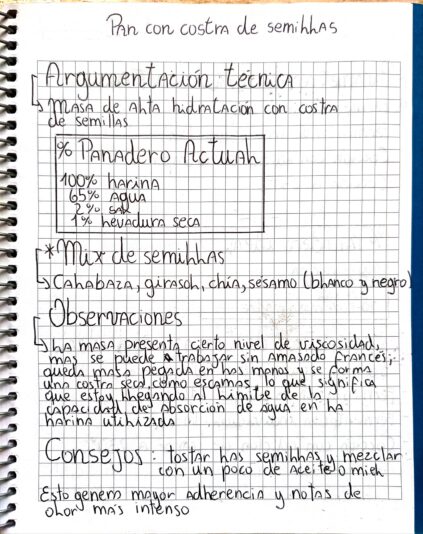 Pan con costra de semillas
Argumentación técnica
Masa de alta hidratación con costra
de semillas
% Panadero Actual
100% harina
65% agua
2% sal
1% levadura seca
*Mix de semillas
Calabaza, girasol, chía, sésamo (blanco y negro)
Observaciones
La masa presenta cierto nivel de viscosidad,
mas se puede trabajar sin amasado francés;
queda masa pegada en las manos y se forma
una costra seca, como escamas, lo que significa
que estoy llegando al límite de la
capacidad de absorción de agua en la
harina utilizada.
Consejos: tostar las semillas y mezclar
con un poco de aceite o miel
Esto genera mayor adherencia y notas de
olor más intenso